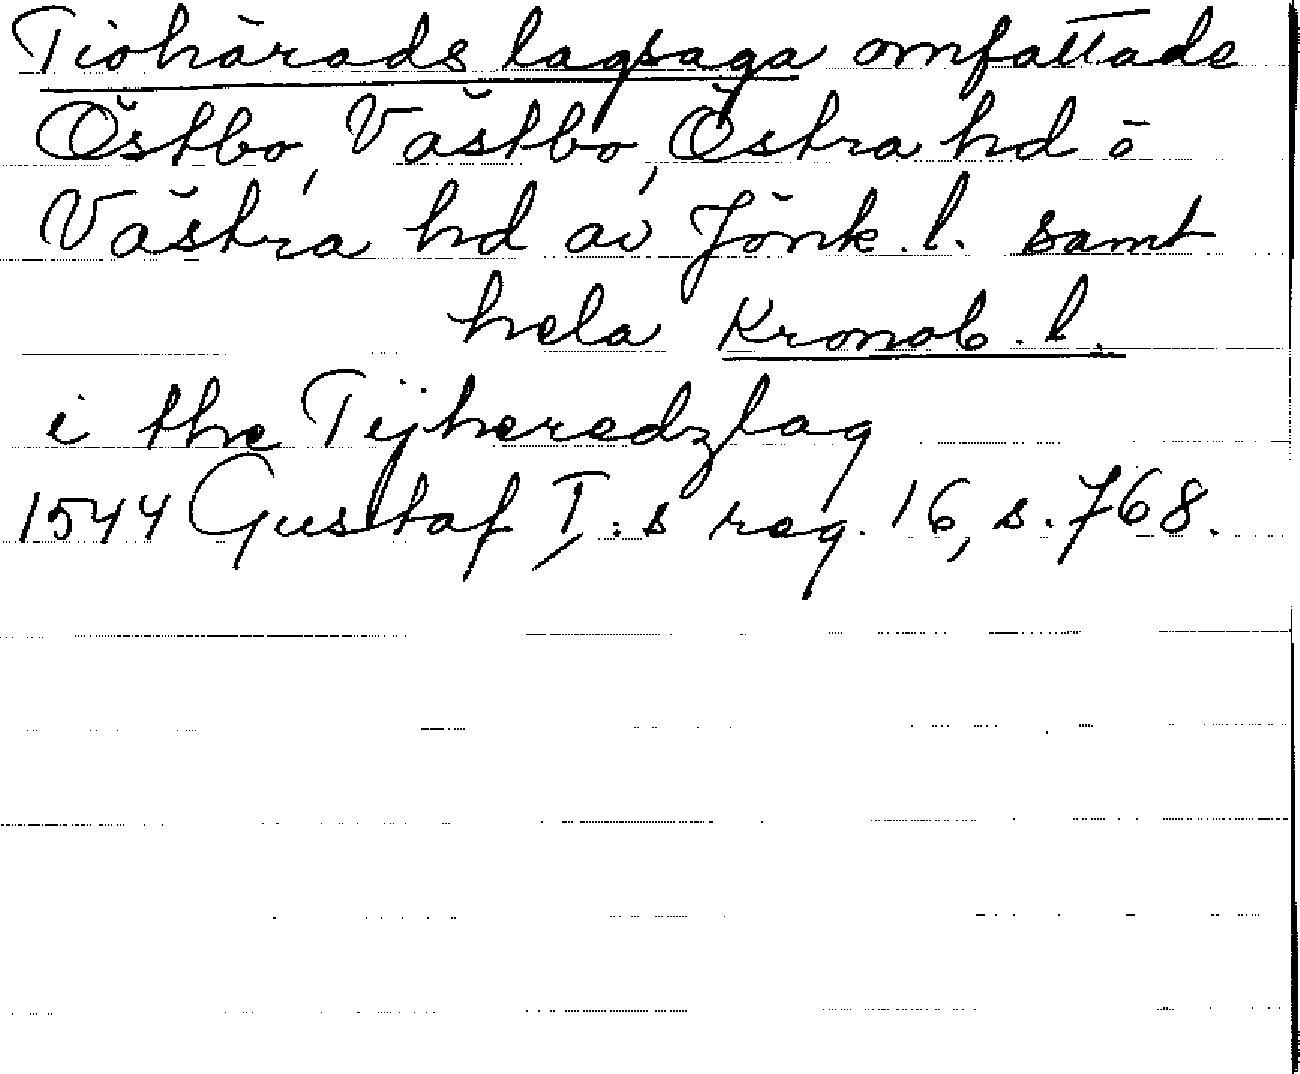 Tiohärads lagsaga omfattade
Östbo, Västbo, Östra hd o
Västra hd av Jönk. l. samt
hela Kronob. l.
i the Tijheredzlag
1544 Gustaf I:s reg. 16, s. 768.